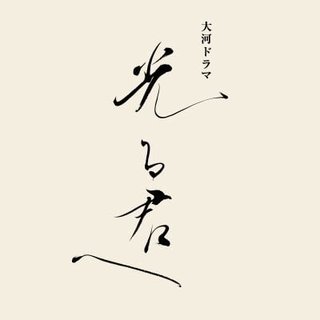 大河ドラマ
光る君へ